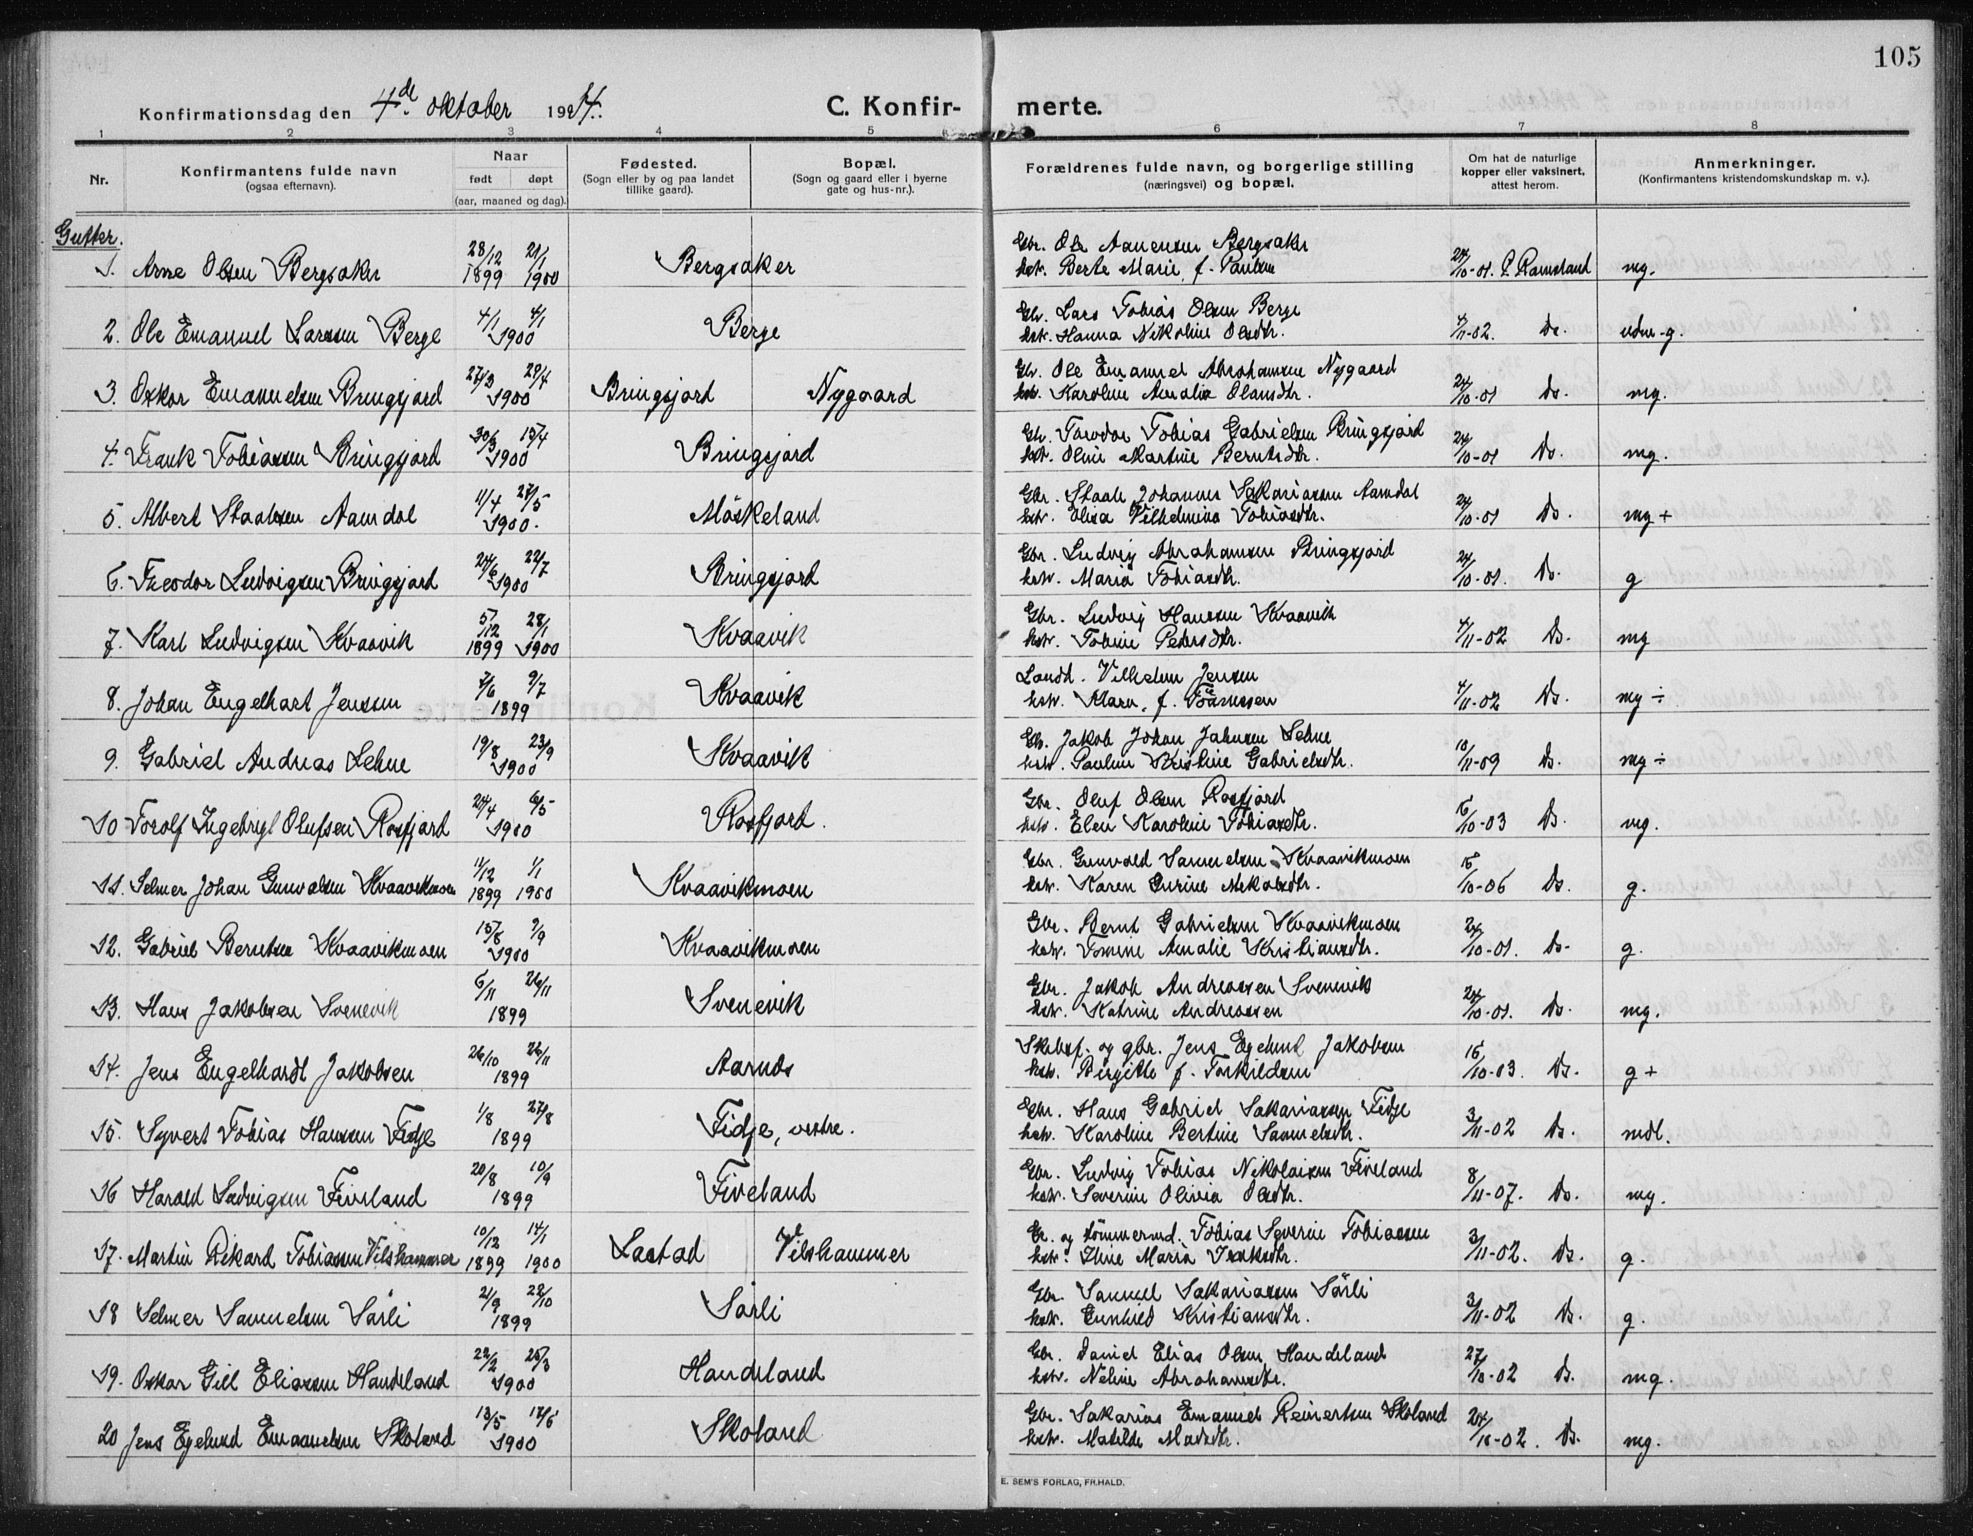 105
Konfirmationsdag den 4de oktober 1914. C. Konfir- merte.
1 2 3 4 5 6 7 8
Nr. Konfirmantens fulde navn (ogsaa efternavn). Naar født døpt (aar, maaned og dag). Fødested. (Sogn eller by og paa landet tillike gaard). Bopæl. (Sogn og gaard eller i byerne gate og hus-nr.). Forældrenes fulde navn, og borgerlige stilling (næringsvei) og bopæl. Om hat de naturlige kopper eller vaksinert, attest herom. Anmerkninger. (Konfirmantens kristendomskundskap m. v.).
Gutter.
1. Arne Olsen Bergsaker 28/12 1899 21/1 1900 Bergsaker Gbr. Ole Aanensen Bergsaker
hst. Berte Marie f. Paulsen 24/10-01. P. Ramsland mg.
2. Ole Emanuel Larssen Berge 4/1 4/1 1900 Berge Gbr. Lars Tobias Olsen Berge
hst. Hanna Nikoline Olsdtr. 4/11-02. Ds. udm-g.
3. Oskar Emanuelsen Bringsjord 27/3 29/4 1900 Bringsjord Nygaard Gbr. Ole Emanuel Abrahamsen Nygaard
hst. Karoline Amalia Olausdtr. 24/10-01 Ds. mg.
4. Frank Tobiassen Bringsjord 30/3 15/4 1900 Bringsjord Gbr. Tobias Gabrielsen Bringsjord
hst. Oline Martine Berntsdtr. 24/10-01 Ds. mg.
5. Albert Staalesen Aamdal 11/4 27/5 1900. Møskeland Gbr. Staale Johannes Sakariassen Aamdal
hst. Elisa Vilhelmina Tobiasdtr. 24/10-01 Ds. mg +
6. Theodor Ludvigsen Bringsjord 24/6 22/7 1900 Bringsjord Gbr. Ludvig Abrahamsen Bringsjord
hst. Maria Tobiasdtr. 24/10-01. Ds. g
7. Karl Ludvigsen Kvaavik 5/12 1899 28/1 1900 Kvaavik Gbr. Ludvig Hanssen Kvaavik
hst. Tobine Pedersdtr. 4/11-02 Ds. mg
8. Johan Engelhart Jenssen 7/6 9/7 1899 Kvaavik Landh. Vilhelm Jensen
hst. Klara, f. 4/11-02 Ds. mg ÷
9. Gabriel Andreas Lehne 19/8 23/9 1900 Kvaavik Gbr. Jakob Johan Jahnsen Lehne
hst. Pauline Kristine Gabrielsdtr. 18/11-09 Ds. mg ÷
10 Torolf Ingebrigt Olufsen Rosfjord 24/4 6/5 1900 Rosfjord. Gbr. Oluf Olsen Rosfjord
hst. Elen Karoline Tobiasdtr. 15/10-03 Ds. mg.
11. Selmer Johan Gunvalsen Kvaavikmoen 11/12 1899 1/1 1900 Kvaavikmoen Gbr. Gunvald Samuelsen Kvaavikmoen
hst. Karen Gurine Nikolsdtr. 15/10-06 Ds. g.
12. Gabriel Berntsen Kvaavikmoen 15/8 2/9 1900 Kvaavikmoen Gbr. Bernt Gabrielsen Kvaavikmoen
hst. Tomine Amalie Kristiansdtr. 24/10-01. Ds. g.
13. Hans Jakobsen Svenevik 6/11 26/11 1899 Svenevik Gbr. Jakob Andreassen Svenevik
hst. Katrine Andreassen 24/10-01. Ds. mg.
14. Jens Engelhardt Jakobsen 26/10 26/11 1899 Aarnes Skibsf. og gbr. Jens Egelund Jakobsen
hst. Birgitte f. Torkildsen 15/10-03. Ds. g +
15. Syvert Tobias Hanssen Fidje 1/8 27/8 1899 Fidje, vestre. Gbr. Hans Gabriel Sakariassen Fidje
hst. Karoline Bertine Samuelsdtr. 3/11-02 Ds. mdl.
16 Harald Ludvigsen Fiveland 20/8 10/9 1899 Fiveland Gbr. Ludvig Tobias Nikolaisen Fiveland
hst. Severine Olivia Olsdtr. 8/11-07. Ds. mg.
17. Martin Rikard Tobiassen Vilshammer 10/12 1899 14/1 1900 Lastad Vilshammer Gbr. og tømmermd. Tobias Severin Tobiassen
hst. Maria Isaksdtr. 3/11-02. Ds. g.
18 Selmer Samuelsen Sørli 21/9 22/10 1899 Sørli Gbr. Samuel Sakariassen Sørli
hst. Gunhild Kristiansdtr. 3/11-02 Ds. g.
19. Oskar Gill Eliassen Handeland 22/2 25/3 1900 Handeland Gbr. Daniel Elias Olsen Handeland
hst. Neline Abrahamsdtr. 27/10-02 Ds. mg.
20 Jens Egelund Emanuelsen Skoland 13/5 17/6 1900 Skoland Gbr. Sakarias Emanuel Reinertsen Skoland
hst. Matilde Madsdtr. 24/10-02. Ds. mg.
E. SEM'S FORLAG, FR.HALD.